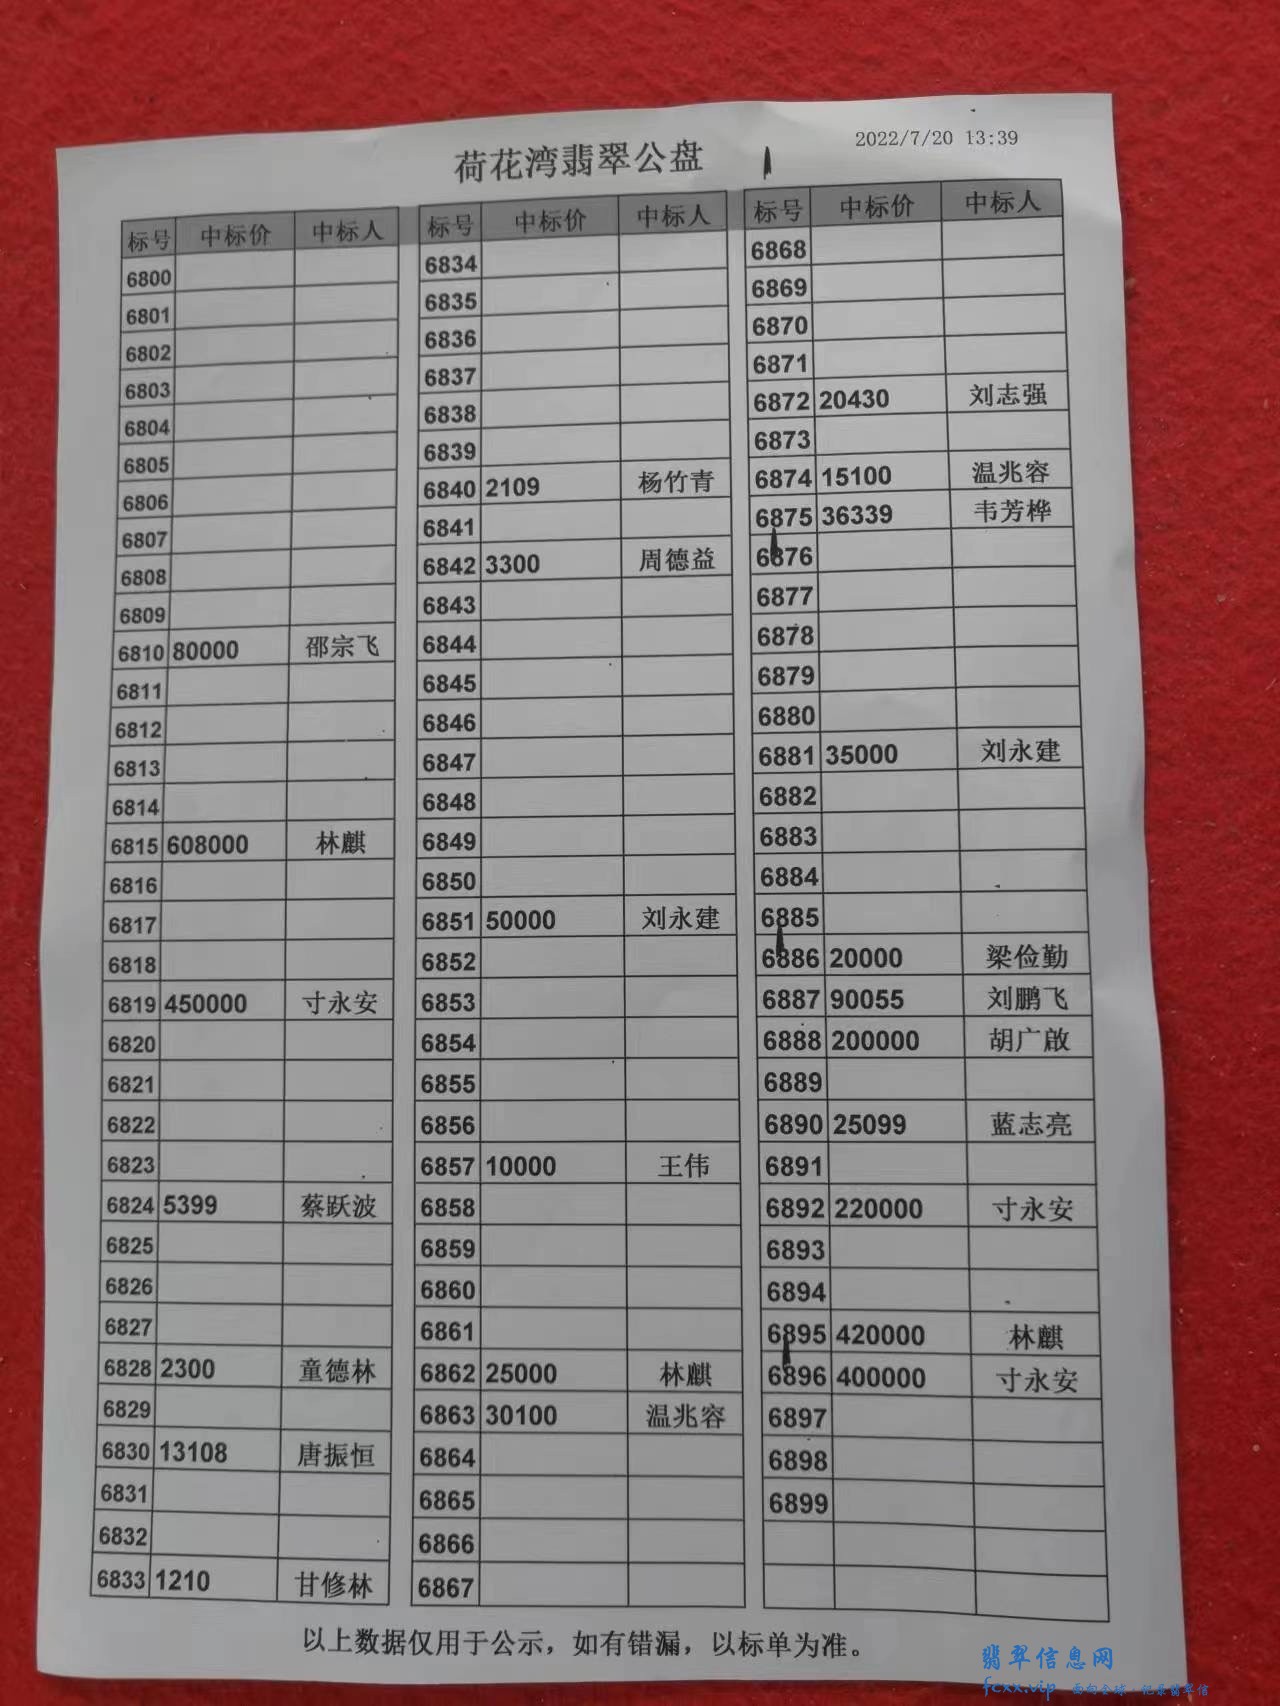 荷花湾翡翠公盘
2022/7/20 13:39
标号 中标价 中标人
6800
6801
6802
6803
6804
6805
6806
6807
6808
6809
6810 80000 邵宗飞
6811
6812
6813
6814
6815 608000 林麒
6816
6817
6818
6819 450000 寸永安
6820
6821
6822
6823
6824 5399 蔡跃波
6825
6826
6827
6828 2300 童德林
6829
6830 13108 唐振恒
6831
6832
6833 1210 甘修林
标号 中标价 中标人
6834
6835
6836
6837
6838
6839
6840 2109 杨竹青
6841
6842 3300 周德益
6843
6844
6845
6846
6847
6848
6849
6850
6851 50000 刘永建
6852
6853
6854
6855
6856
6857 10000 王伟
6858
6859
6860
6861
6862 25000 林麒
6863 30100 温兆容
6864
6865
6866
6867
标号 中标价 中标人
6868
6869
6870
6871
6872 20430 刘志强
6873
6874 15100 温兆容
6875 36339 韦芳桦
6876
6877
6878
6879
6880
6881 35000 刘永建
6882
6883
6884
6885
6886 20000 梁俭勤
6887 90055 刘鹏飞
6888 200000 胡广啟
6889
6890 25099 蓝志亮
6891
6892 220000 寸永安
6893
6894
6895 420000 林麒
6896 400000 寸永安
6897
6898
6899
以上数据仅用于公示，如有错漏，以标单为准。
翡翠信息网
fcxx.vip 面向全球·记录翡翠信